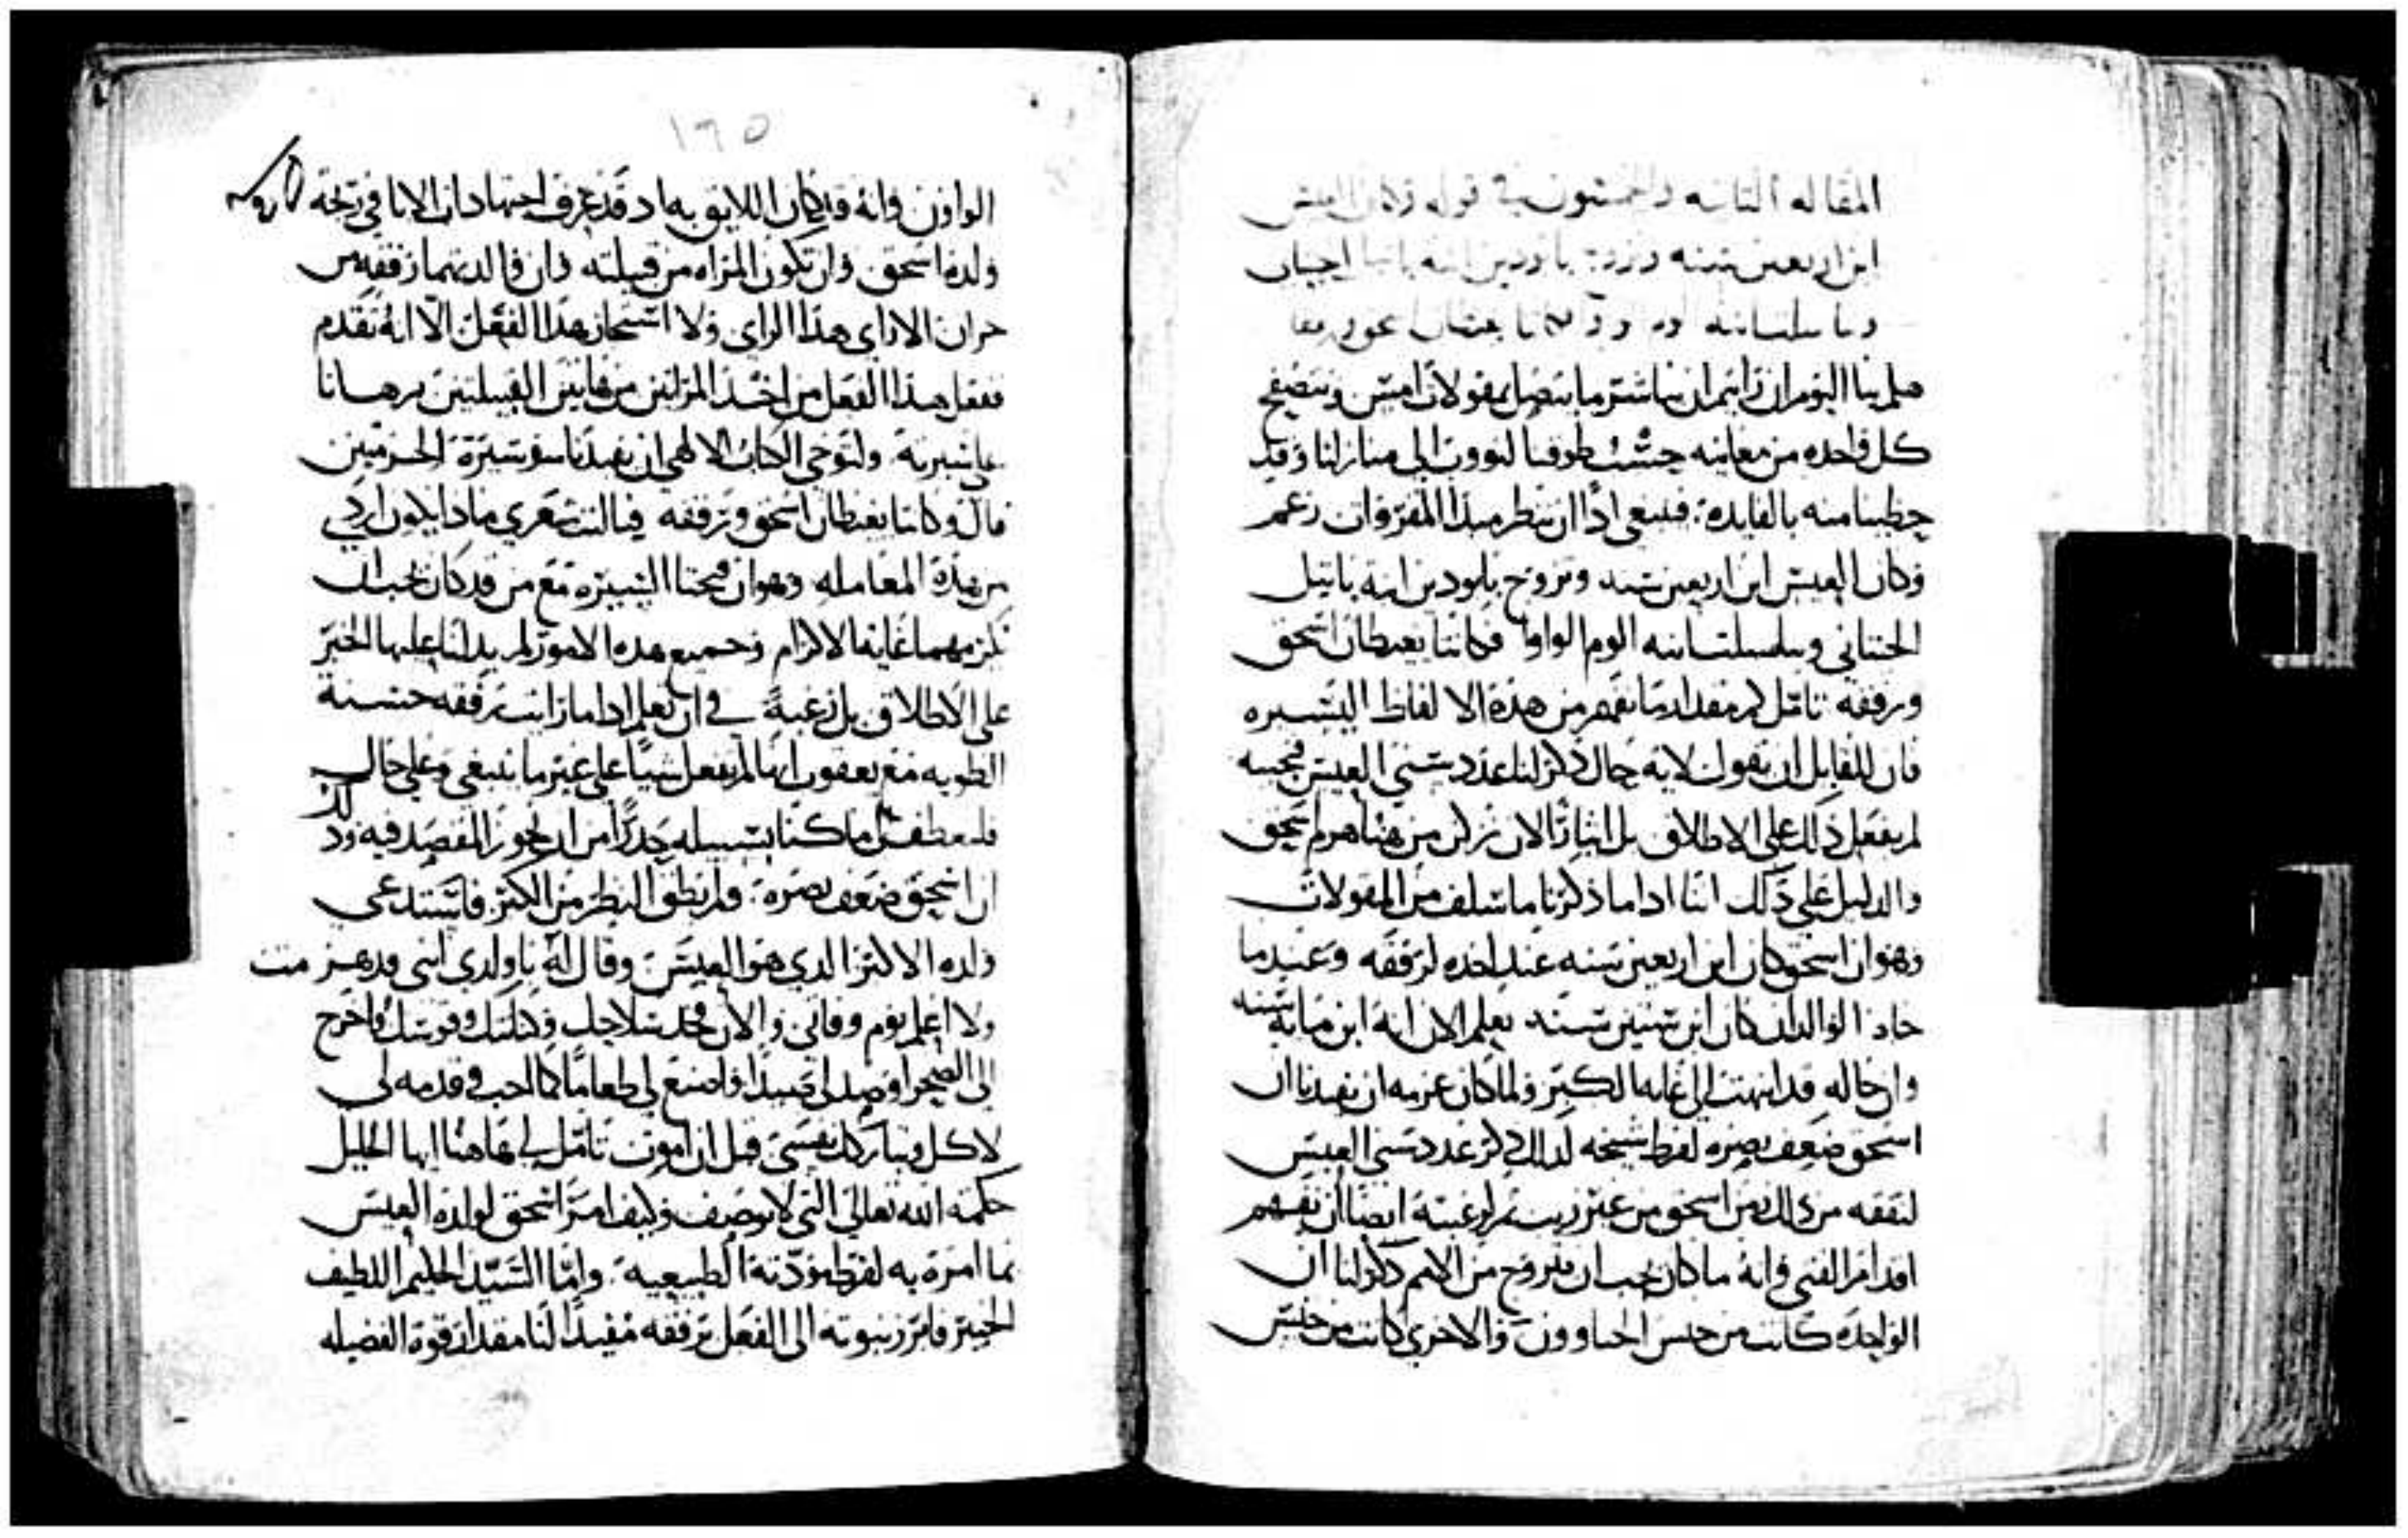 المقاله الثانيه والخمسون في قوله وكان العيس
ابن اربعين سنه
هلم بنا اليوم ان رايتم ان نباشر ما يتصل بمقولات امس ونتصفح
كل واحده من معانيه حسب طوقنا لنووب الى منازلنا وقد
حظينا منه بالفايده فينبغي اذا ان ننظر مبدا المقروات زعم
وكان العيس ابن اربعين سنه وتزوج بلودين ابنه بانيل
الحتاني وسلسلتا بنه الوم الواوا فكانتا يغيظان اسحق
ورفقه تامل كم مقدار ما نفهم من هذه الالفاظ اليسيره
فان للقايل ان يقول لايه حال ذكر لنا عدد سني العيس فجيبه
لم يفعل ذلك على الاطلاق بل ايثارا لان نزكن من هنا هرم اسحق
والدليل على ذلك اننا اذا ما ذكرنا ما سلف من المقولات
وهو ان اسحق كان ابن اربعين سنه عند اخده لرفقه وعندما
حاذا الوالدان كان ابن ستين سنه يعلم الان انه ابن مايه سنه
وان حاله قد انتهت الى غايه الكبر ولما كان عزمه ان يفيدنا ان
اسحق ضعف بصره لفرط شيخه لذلك ذكر عدد سني العيس
لنفقه من ذلك زمن اسحق من غير ريب ثم لرغبته ايضا ان نفهم
اقدام الفتى وانه ما كان يجب ان يتزوج من الامم ذكر لنا ان
الواحده كانت من جنس الحياوون والاخرى كانت من جنس
١٦٥
الواون وانه قد كان اللايق به اد قد عرف اجتهادات الابا في زيجة
ولده اسحق وان تكون المراه من قبيلته وان والديهما رفقه من
حران الا راى هذا الراى ولا استحاز هذا الفعل الا انه تقدم
ففعل هذا الفعل من اخذ المراتين من هاتين القبيلتين برهانا
على شيرته ولتوخي الكتاب الالهي ان يفيدنا سو سيرة الحرمتين
قال وكانتا يغيظان اسحق ورفقه فيا ليت شعري ماذا يكون اردي
من هذه المعامله وهو ان قبحتا السيره مع من قد كان يجب ان
تكرمهما غاية الاكرام وجميع هذه الامور لم يدلنا عليها الخبر
على الاطلاق بل رغبة في ان نعلم اذا ما رايت رفقه حسنة
الطويه مع يعقوب انها لم تفعل شيا على غير ما ينبغي وعلى حال
فلنعطف الى ما كنا بسبيله حدرا من ان نجوز المقصد فيه وذلك
ان اسحق ضعف بصره ولم يطق النظر من الكبر فاستدعى
ولده الاكبر الدي هو العيس وقال له يا ولدي انني قد هرمت
ولا اعلم يوم وفاتي والان فخد سلاحك وكنانتك وقوسك واخرج
الى الصحرا وصد لي صيدا واصنع لي طعاما كما احب وقدمه لي
لاكل وتباركك نفسي قبل ان اموت تامل لي هاهنا ايها الخليل
حكمة الله تعالى التي لا توصف وكيف امر اسحق لولده العيس
بما امره به لفرط مودته الطبيعيه واما السيد الحليم اللطيف
الخبير فابرز نبوته الى الفعل برفقه مفيدا لنا مقدار قوة الفضيله